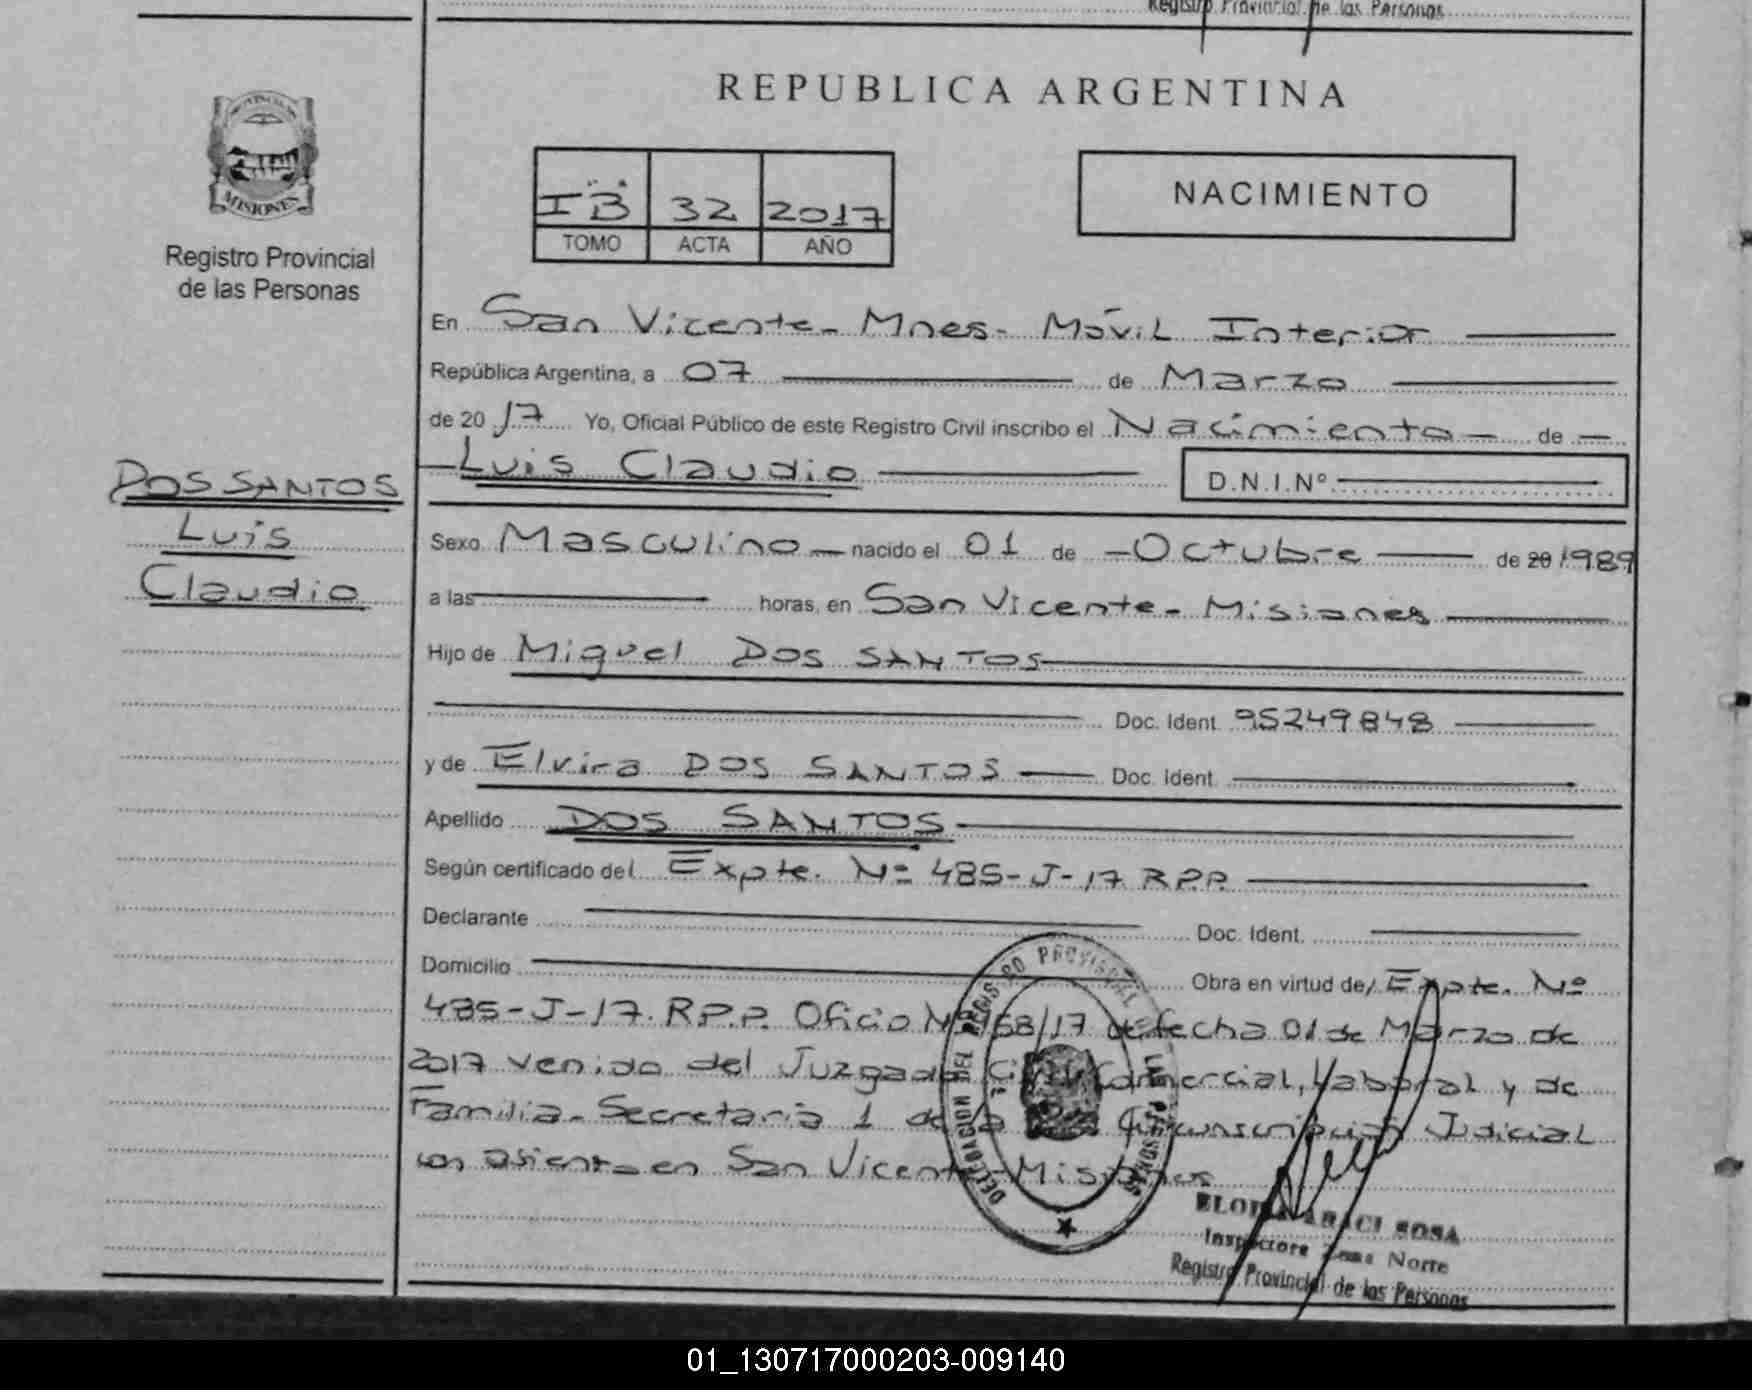 Registro Provincial de las Personas
PROVINCIA DE
MISIONES
Registro Provincial
de las Personas
REPUBLICA ARGENTINA
IB 32 2017
TOMO ACTA AÑO
NACIMIENTO
En San Vicente - Mnes - Móvil Interior
República Argentina, a 07 de Marzo
de 2017 Yo, Oficial Público de este Registro Civil inscribo el Nacimiento de
Luis Claudio D.N.I.Nº
DOS SANTOS
Luis
Claudio
Sexo Masculino nacido el 01 de Octubre de 20 1989
a las horas, en San Vicente - Misiones
Hijo de Miguel DOS SANTOS
Doc. Ident. 95249848
y de Elvira DOS SANTOS Doc. Ident.
Apellido DOS SANTOS
Según certificado del Expte. Nº 485-J-17 R.P.P.
Declarante Doc. Ident.
Domicilio Obra en virtud de, Expte. Nº
485-J-17. R.P.P. Oficio Nº 168/17 de fecha 01 de Marzo de
2017 venido del Juzgado Civil, Comercial, Laboral y de
Familia - Secretaria 1 de la Circunscripción Judicial
con asiento en San Vicente - Misiones
DELEGACION DEL REGISTRO PROVINCIAL DE LAS PERSONAS
ARACI SOSA
Inspectora Zona Norte
Registro Provincial de las Personas
01_130717000203-009140